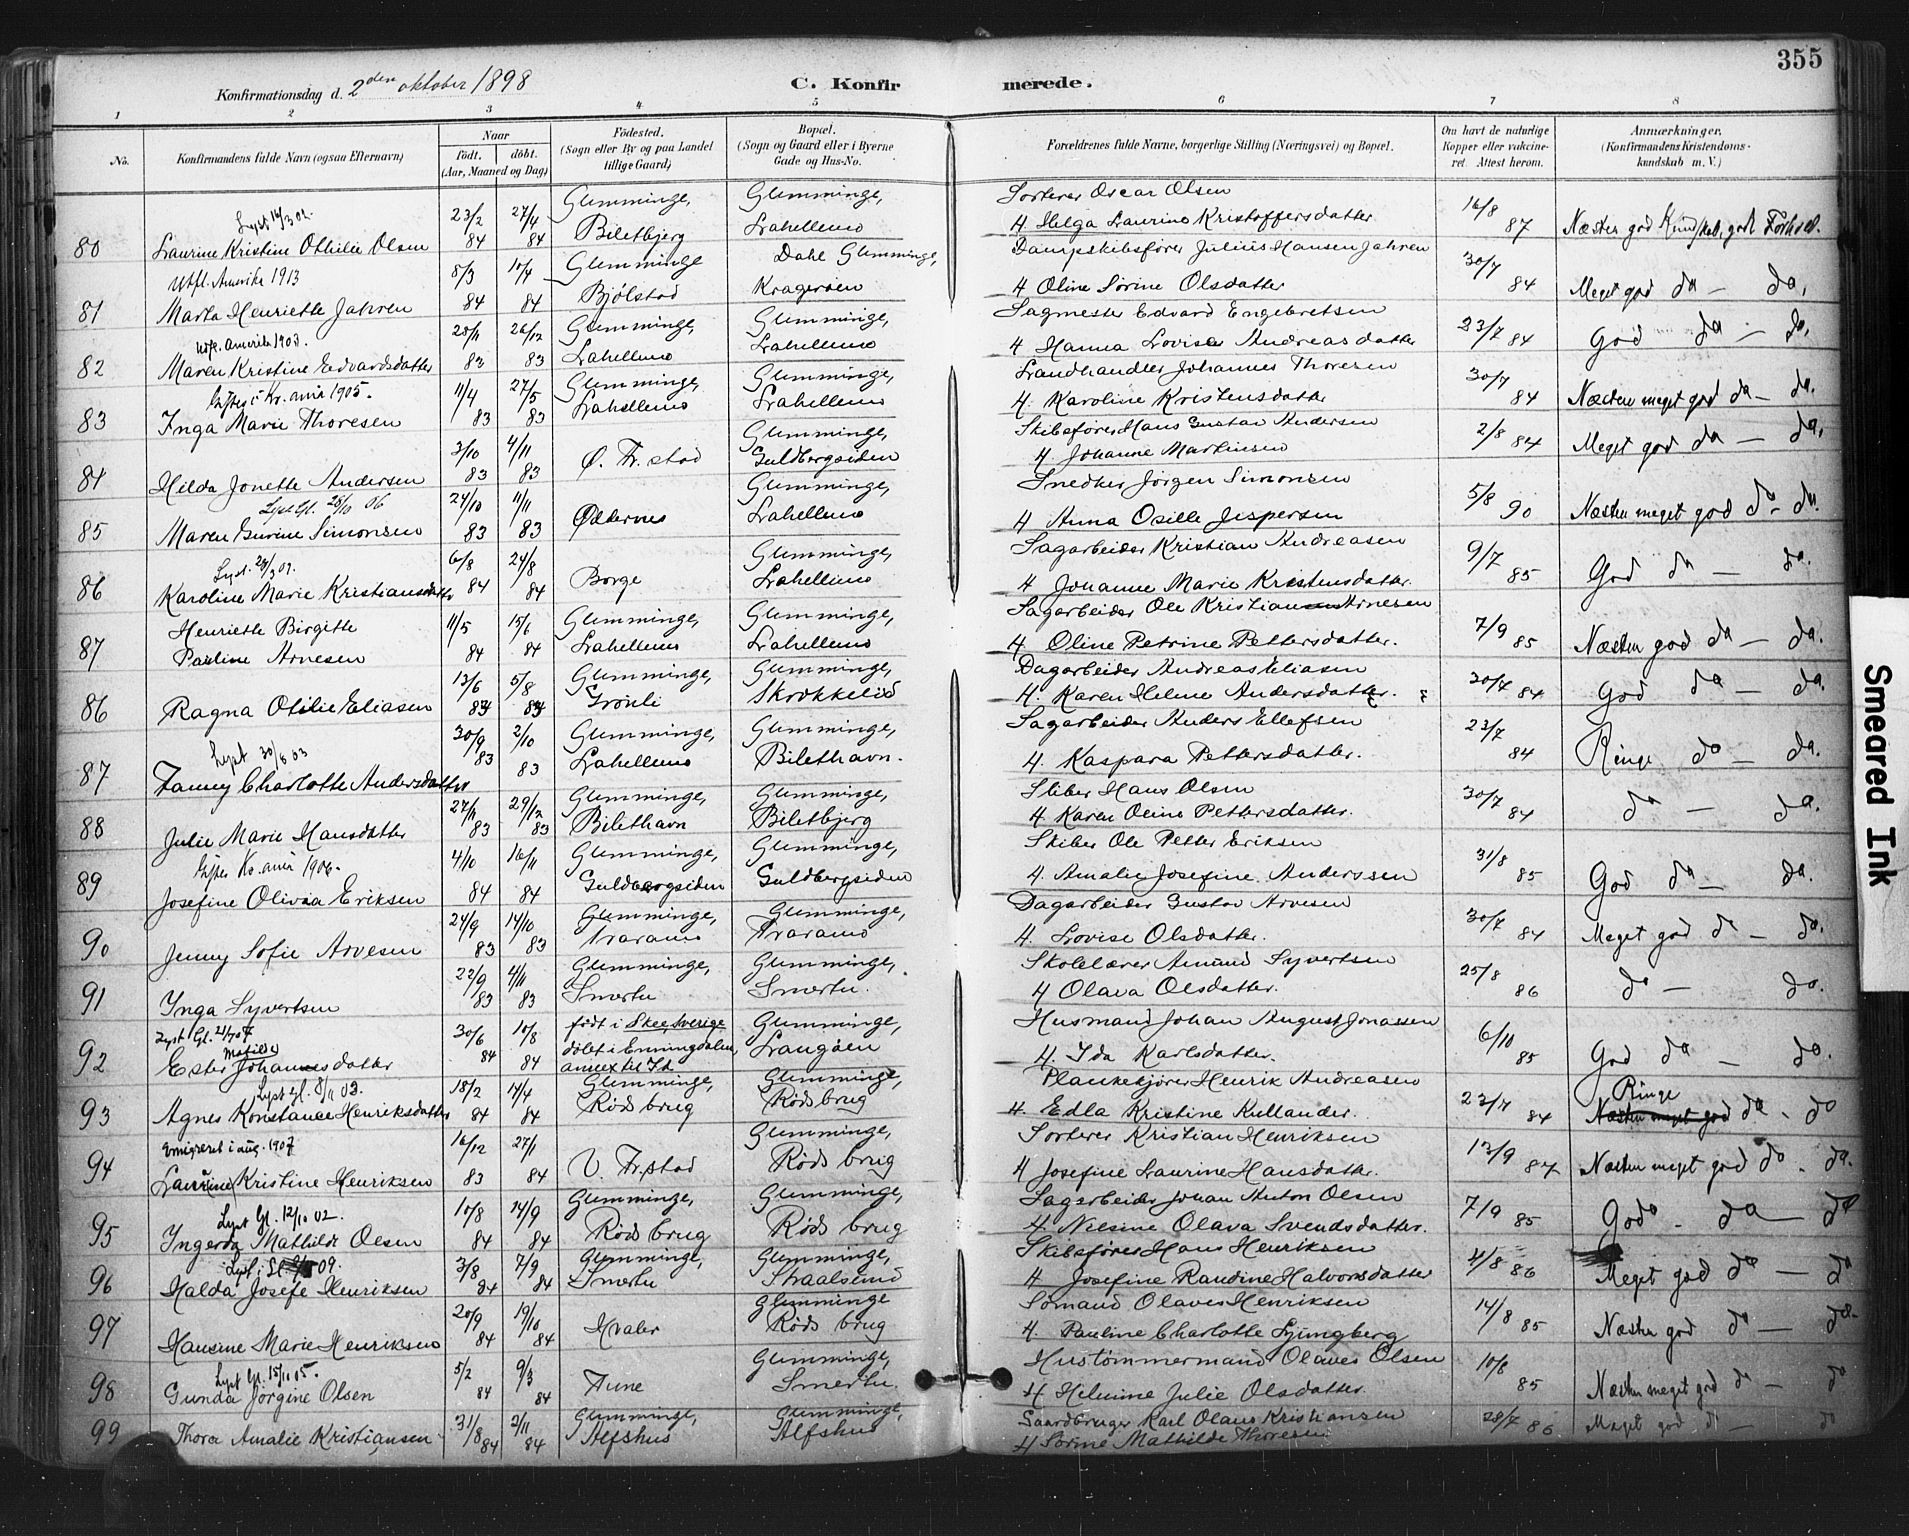 355
Konfirmationsdag d. 2den oktober 1898
C. Konfirmerede.
1 2 3 4 5 6 7 8
No.
Konfirmandens fulde Navn (ogsaa Efternavn)
Naar
født. døbt.
(Aar, Maaned og Dag)
Fødested.
(Sogn eller By og paa Landet tillige Gaard)
Bopæl.
(Sogn og Gaard eller i Byerne Gade og Hus-No.
Forældrenes fulde Navne, borgerlige Stilling (Næringsvei) og Bopæl.
Om havt de naturlige Kopper eller vakcineret. Attest herom.
Anmærkninger.
(Konfirmandens Kristendomskundskab m. V.)
Lyst 16/3 02.
80 Laurine Kristine Othilie Olsen 23/2 84 27/4 84 Glemminge, Biletbjerg Glemminge, Lahellemo
Sorterer Oscar Olsen
4 Helga Laurine Kristoffersdatter 16/8 87 Næsten god Kundskab, godt Forhold.
Utfl. Amerika 1913
81 Marta Henriette Jahren 8/3 84 10/4 84 Glemminge Bjølstad Dahl Glemminge, Kragerøen
Dampskibsfører Julius Hansen Jahren
4 Oline Sørine Olsdatter 30/7 84 Meget god do — do,
Udfl. Amerika 1903.
82 Maren Kristine Edvardsdatter 28/11 83 26/12 83 Glemminge, Lahellemo Glemminge, Lahellemo
Sagmester Edvard Engebretsen
4 Hanna Lovise Andreasdatter 23/7 84 God do — do,
Giftes i Kr.ania 1905.
83 Inga Marie Thoresen 11/4 83 27/5 83 Glemminge, Lahellemo Glemminge, Lahellemo
Landhandler Johannes Thoresen
4. Karoline Kristensdatter 30/7 84 Næsten meget god do — do.
84 Hilda Jonette Andersen 3/10 83 4/11 83 Ø. Fr.stad Glemminge, Guldbergsiden
Skibsfører Hans Gustav Andersen
4. Johanne Martinsen 2/8 84 Meget god do — do,
Lyst Gl. 28/10 06
85 Maren Gurine Simonsen 24/10 83 11/11 83 Øddernes Glemminge, Lahellemo
Snedker Jørgen Simonsen
4 Anna Osille Jespersen 5/8 90 Næsten meget god do - do.
86 Karoline Marie Kristiansdatter 6/8 84 24/8 84 Borge Glemminge, Lahellemo
Sagarbeider Kristian Andreasen
4 Johanne Marie Kristensdatter. 9/7 85 God do — do.
87 Henriette Birgitte Pauline Arnesen 11/5 84 15/6 84 Glemminge, Lahellemo Glemminge, Lahellemo
Sagarbeider Ole Kristian Arnesen
4 Oline Petrine Pettersdatter. 7/9 85 Næsten god do — do.
86 Ragna Otilie Eliasen 13/6 84 5/8 84 Glemminge, Grønli Glemminge, Skrokkelid
Dagarbeider Andreas Eliasen
4. Karen Helene Andersdatter. 30/7 84 God do — do.
Lyst 30/6 03
87 Fanny Charlotte Andersdatter 30/9 83 2/10 83 Glemminge, Lahellemo Glemminge, Bilethavn.
Sagarbeider Anders Ellefsen
4. Kaspara Pettersdatter. 23/7 84 Ringe do — do.
88 Julie Marie Hansdatter 27/11 83 29/12 83 Glemminge, Bilethavn Glemminge, Biletbjerg
Skiber Hans Olsen
4. Karen Oline Pettersdatter. 30/7 84 do — do.
Giftes Kr.ania 1906.
89 Josefine Olivia Eriksen 4/10 84 16/11 84 Glemminge, Guldbergsiden Glemminge, Guldbergsiden
Skiber Ole Petter Eriksen
4. Amalie Josefine Anderssen 31/8 85 God do — do.
90 Jenny Sofie Arvesen 24/9 83 14/10 83 Glemminge, Traramo Glemminge, Traramo
Dagarbeider Gustav Arvesen
4. Lovise Olsdatter. 30/7 84 Meget god do — do.
91 Inga Syvertsen 22/9 83 4/11 83 Glemminge, Smertu Glemminge, Smertu.
Skolelærer Amund Syvertsen
4 Olava Olsdatter. 25/8 86 do — do.
Lyst Gl. 21/7 07
92 Ester Matilde Johannesdatter 30/6 84 10/8 84 født i Skee Sverige døbt i Enningdalen annex til Id. Glemminge, Langøen
Husmand Johan August Jonassen
4. Ida Karlsdatter. 6/10 85 God do — do.
Lyst Gl. 8/11 03.
93 Agnes Konstance Henriksdatter 18/2 84 14/4 84 Glemminge, Røds brug Glemminge, Røds brug
Plankekjører Henrik Andreasen
4. Edla Kristine Kullander. 23/7 84 Ringe Næsten meget god do - do
Emigreret i aug. 1907
94 Laurine Kristine Henriksen 16/12 83 27/1 84 V. Fr.stad Glemminge, Røds brug
Sorterer Kristian Henriksen
4 Josefine Laurine Hansdatter. 13/9 84 Næsten meget god do. do.
Lyst Gl. 12/10 02.
95 Ingerda Mathilde Olsen 10/8 84 14/9 84 Glemminge, Røds brug Glemminge, Røds brug
Sagarbeider Johan Anton Olsen
4. Nilsine Olava Svendsdatter. 7/9 85 God - do — do
96 Halda Josefe Henriksen 3/8 84 7/9 84 Glemminge, Smertu Glemminge, Straalsund
Skibsfører Hans Henriksen
4 Josefine Randine Halvorsdatter 4/8 86 Meget god do — do
97 Hansine Marie Henriksen 20/9 84 19/10 84 Hvaler Glemminge Røds brug
Sømand Olaves Henriksen
4. Pauline Charlotte Ljungberg 14/8 85 Næsten god do — do.
Lyst Gl. 15/10 05.
98 Gunda Jørgine Olsen 5/2 84 9/3 84 Tune Glemminge, Smertu.
Hustømmermand Olaves Olsen
4 Helmine Julie Olsdatter 10/8 85 Næsten meget god do — do
99 Thora Amalie Kristiansen 31/8 84 2/11 84 Glemminge, Alfshus Glemminge, Alfshus
Gaardbruger Karl Olaus Kristiansen
4 Sørine Mathilde Thoresen 28/7 86 Meget god do — do
Smeared Ink